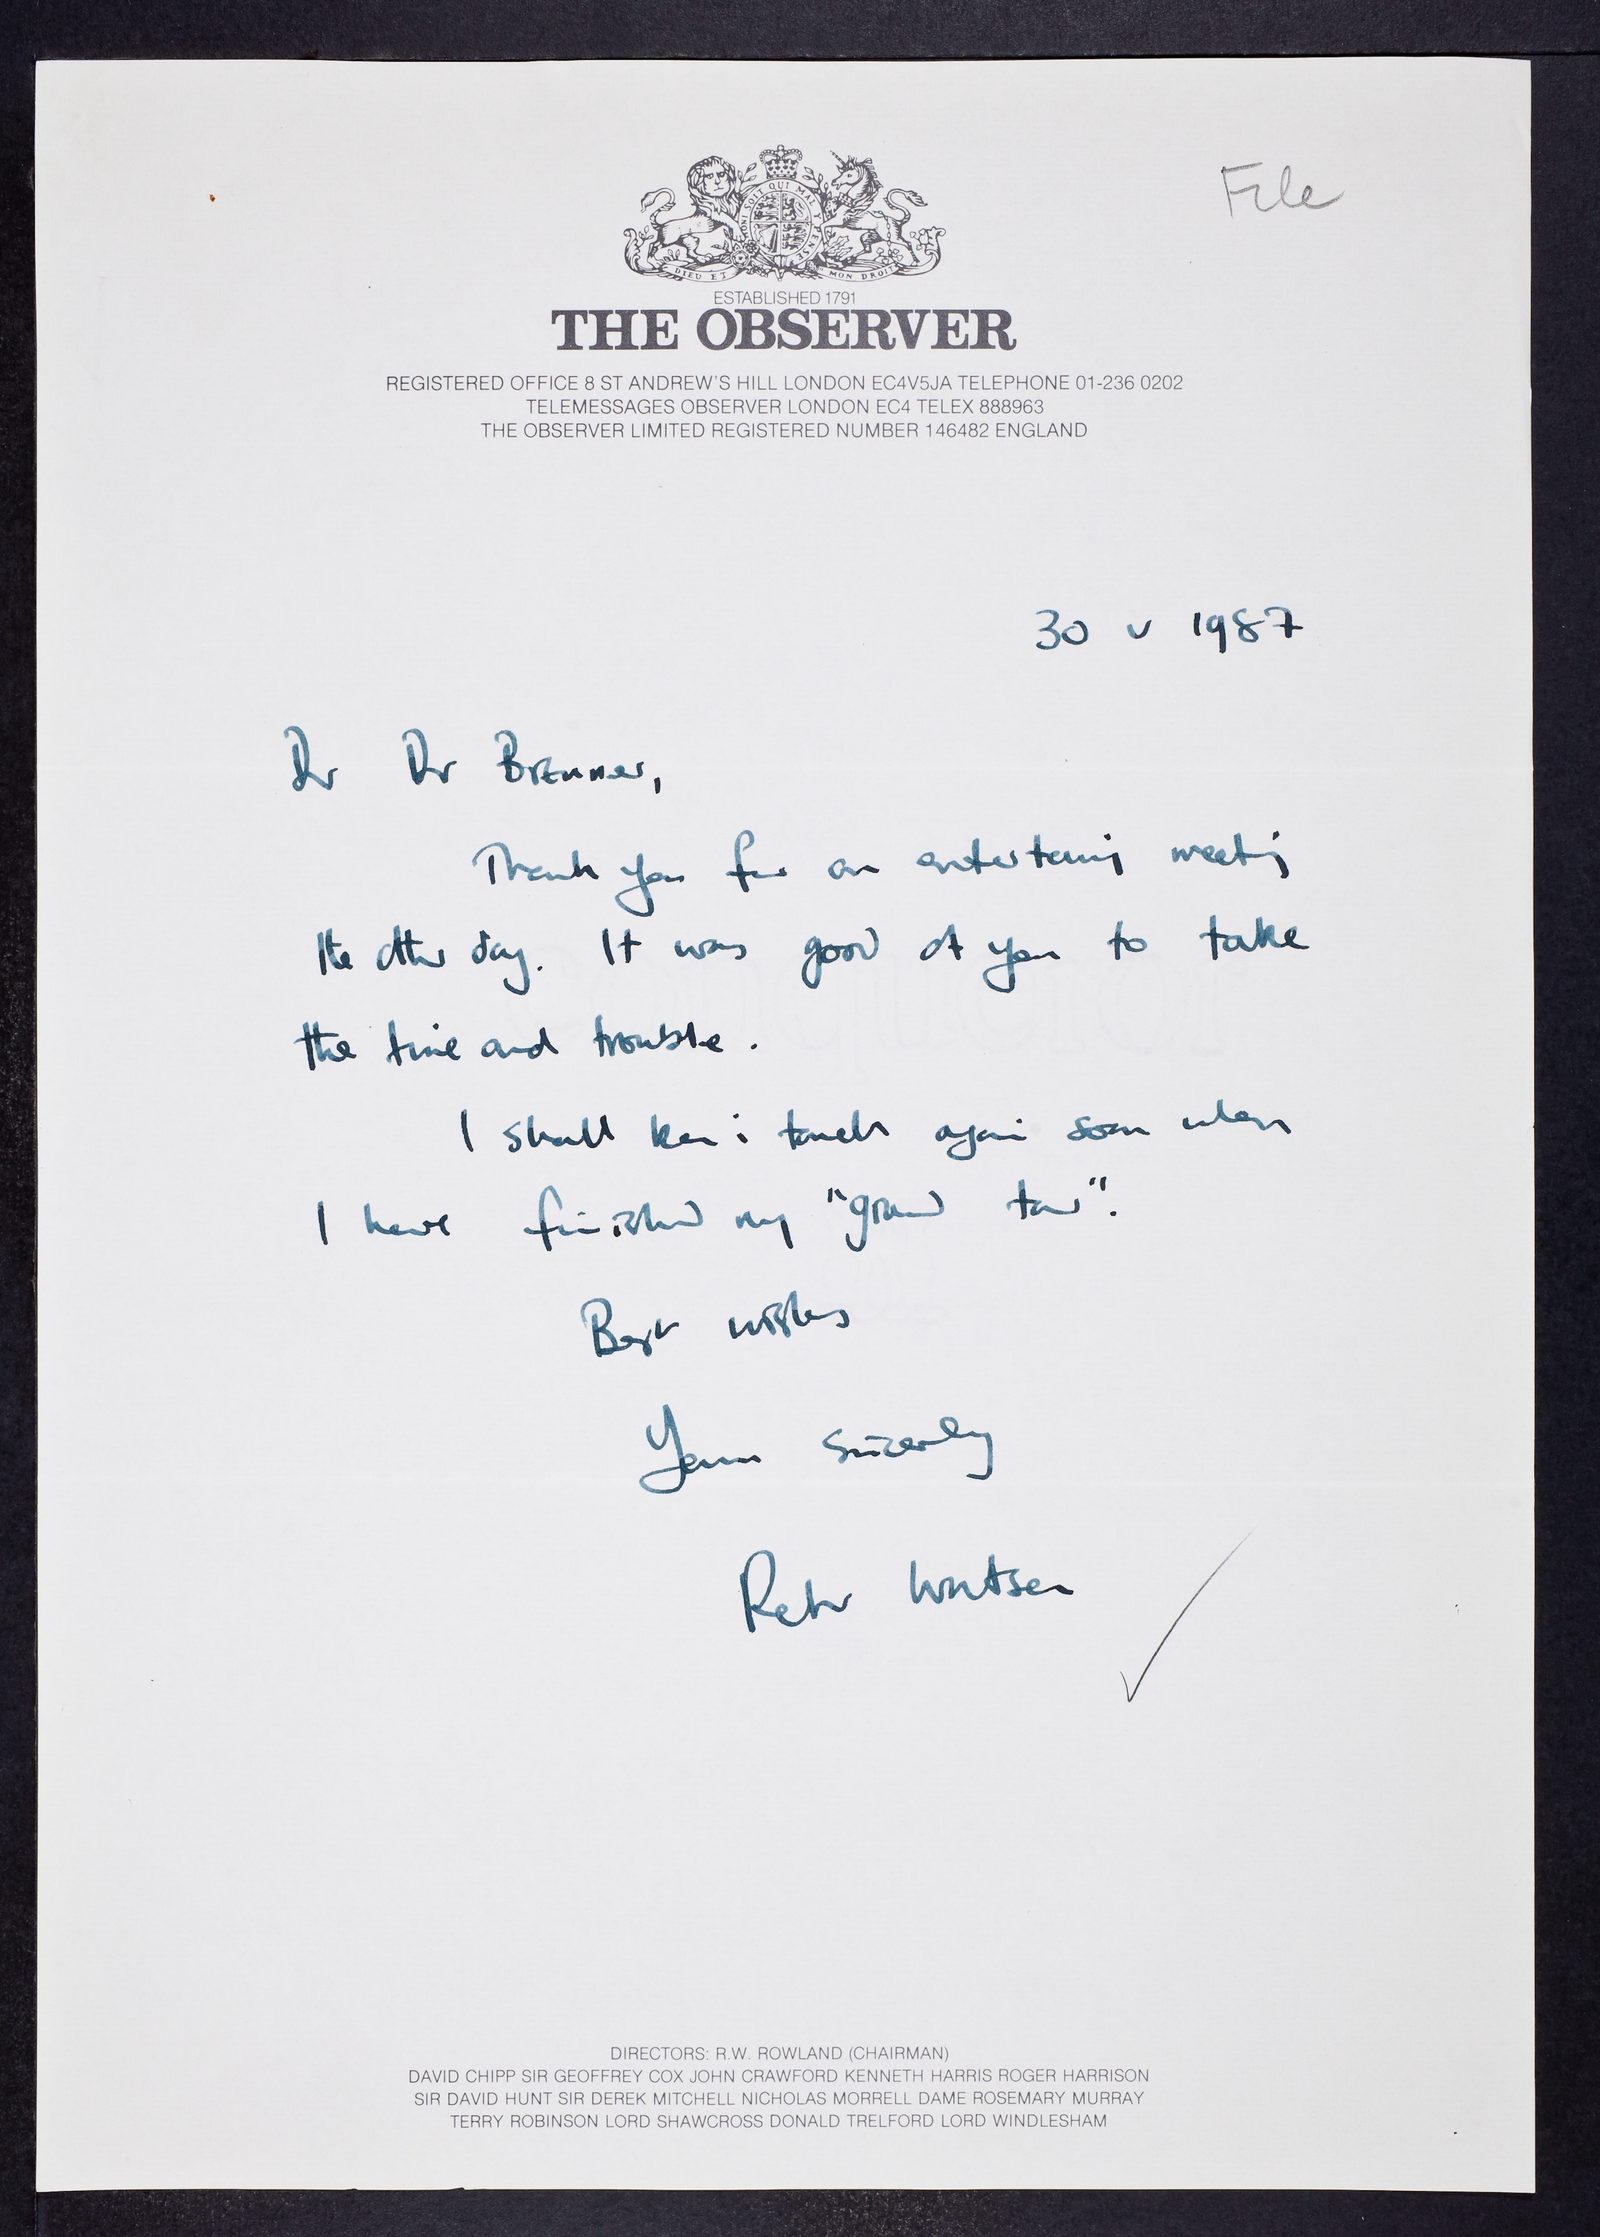 File
HONI SOIT QUI MAL Y PENSE
DIEU ET MON DROIT
ESTABLISHED 1791
THE OBSERVER
REGISTERED OFFICE 8 ST ANDREW'S HILL LONDON EC4V5JA TELEPHONE 01-236 0202
TELEMESSAGES OBSERVER LONDON EC4 TELEX 888963
THE OBSERVER LIMITED REGISTERED NUMBER 146482 ENGLAND
30 v 1987
Dr Dr Brenner,
Thank you for an entertaining meeting
the other day. It was good of you to take
the time and trouble.
I shall be in touch again soon when
I have finished my "grand tour".
Best wishes
Yours sincerely
Peter Watson
DIRECTORS: R.W. ROWLAND (CHAIRMAN)
DAVID CHIPP SIR GEOFFREY COX JOHN CRAWFORD KENNETH HARRIS ROGER HARRISON
SIR DAVID HUNT SIR DEREK MITCHELL NICHOLAS MORRELL DAME ROSEMARY MURRAY
TERRY ROBINSON LORD SHAWCROSS DONALD TRELFORD LORD WINDLESHAM